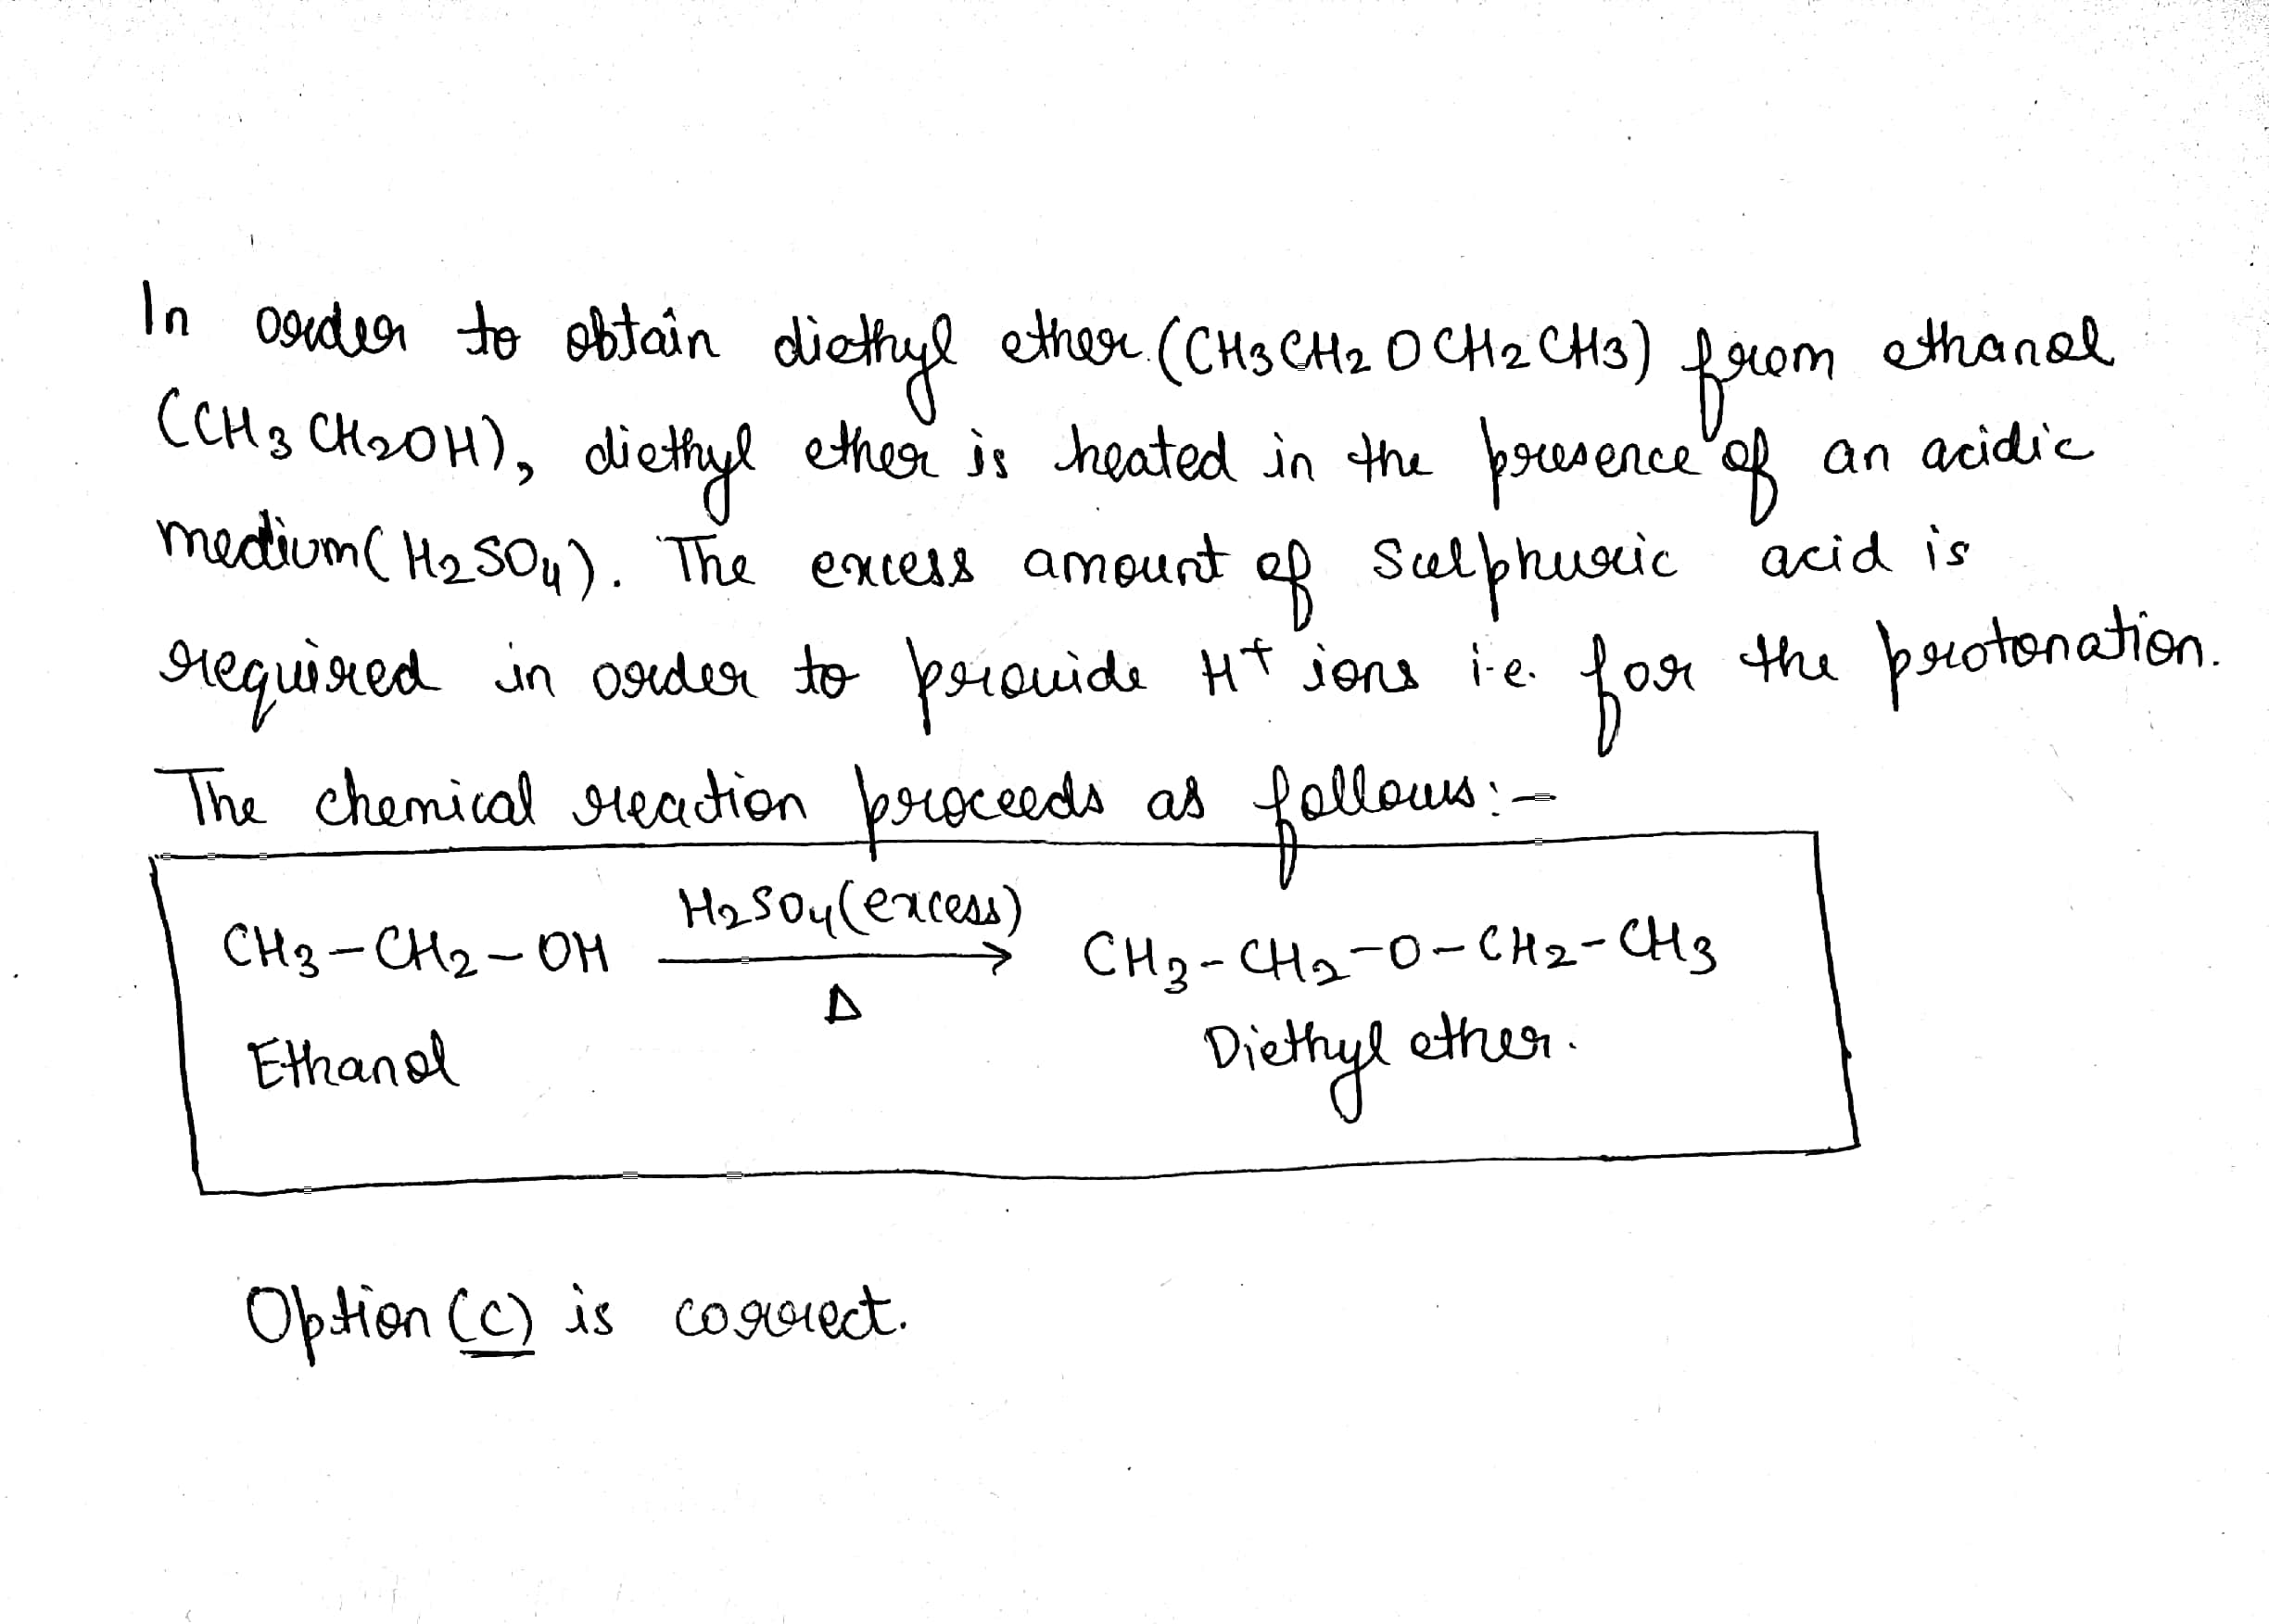 In order to obtain diethyl ether (CH3CH2OCH2CH3) from ethanol
(CH3CH2OH), diethyl ether is heated in the presence of an acidic
medium(H2SO4). The excess amount of Sulphuric acid is
required in order to provide H+ ions i.e. for the protonation.
The chemical reaction proceeds as follows:-
H2SO4(excess)
CH3-CH2-OH → CH3-CH2-O-CH2-CH3
Δ
Ethanol Diethyl ether.
Option (C) is correct.